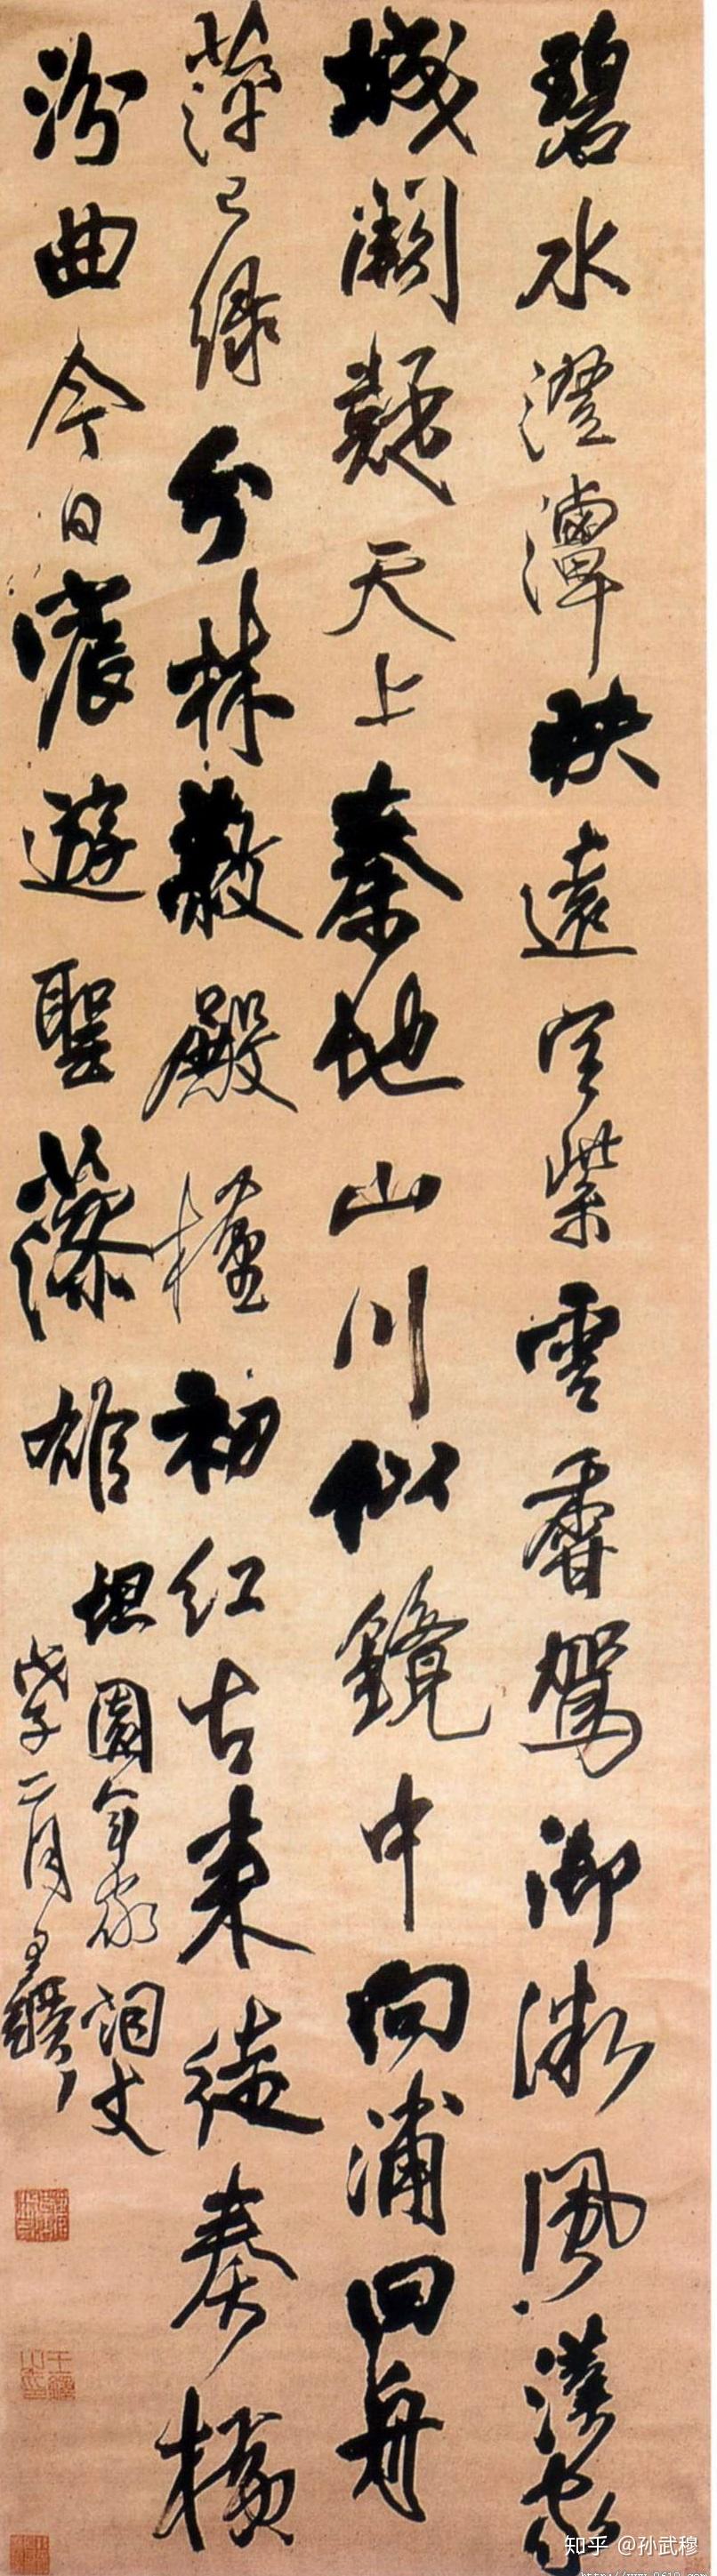 碧水澄潭映遠空紫雲香駕御微風漢家
城闕疑天上秦地山川似鏡中向浦回舟
萍已綠分林蔽殿槿初紅古来徒奏橫
汾曲今日宸遊聖藻雄
坦園年家詞丈
戊子二月王鐸
知乎 @孙武穆